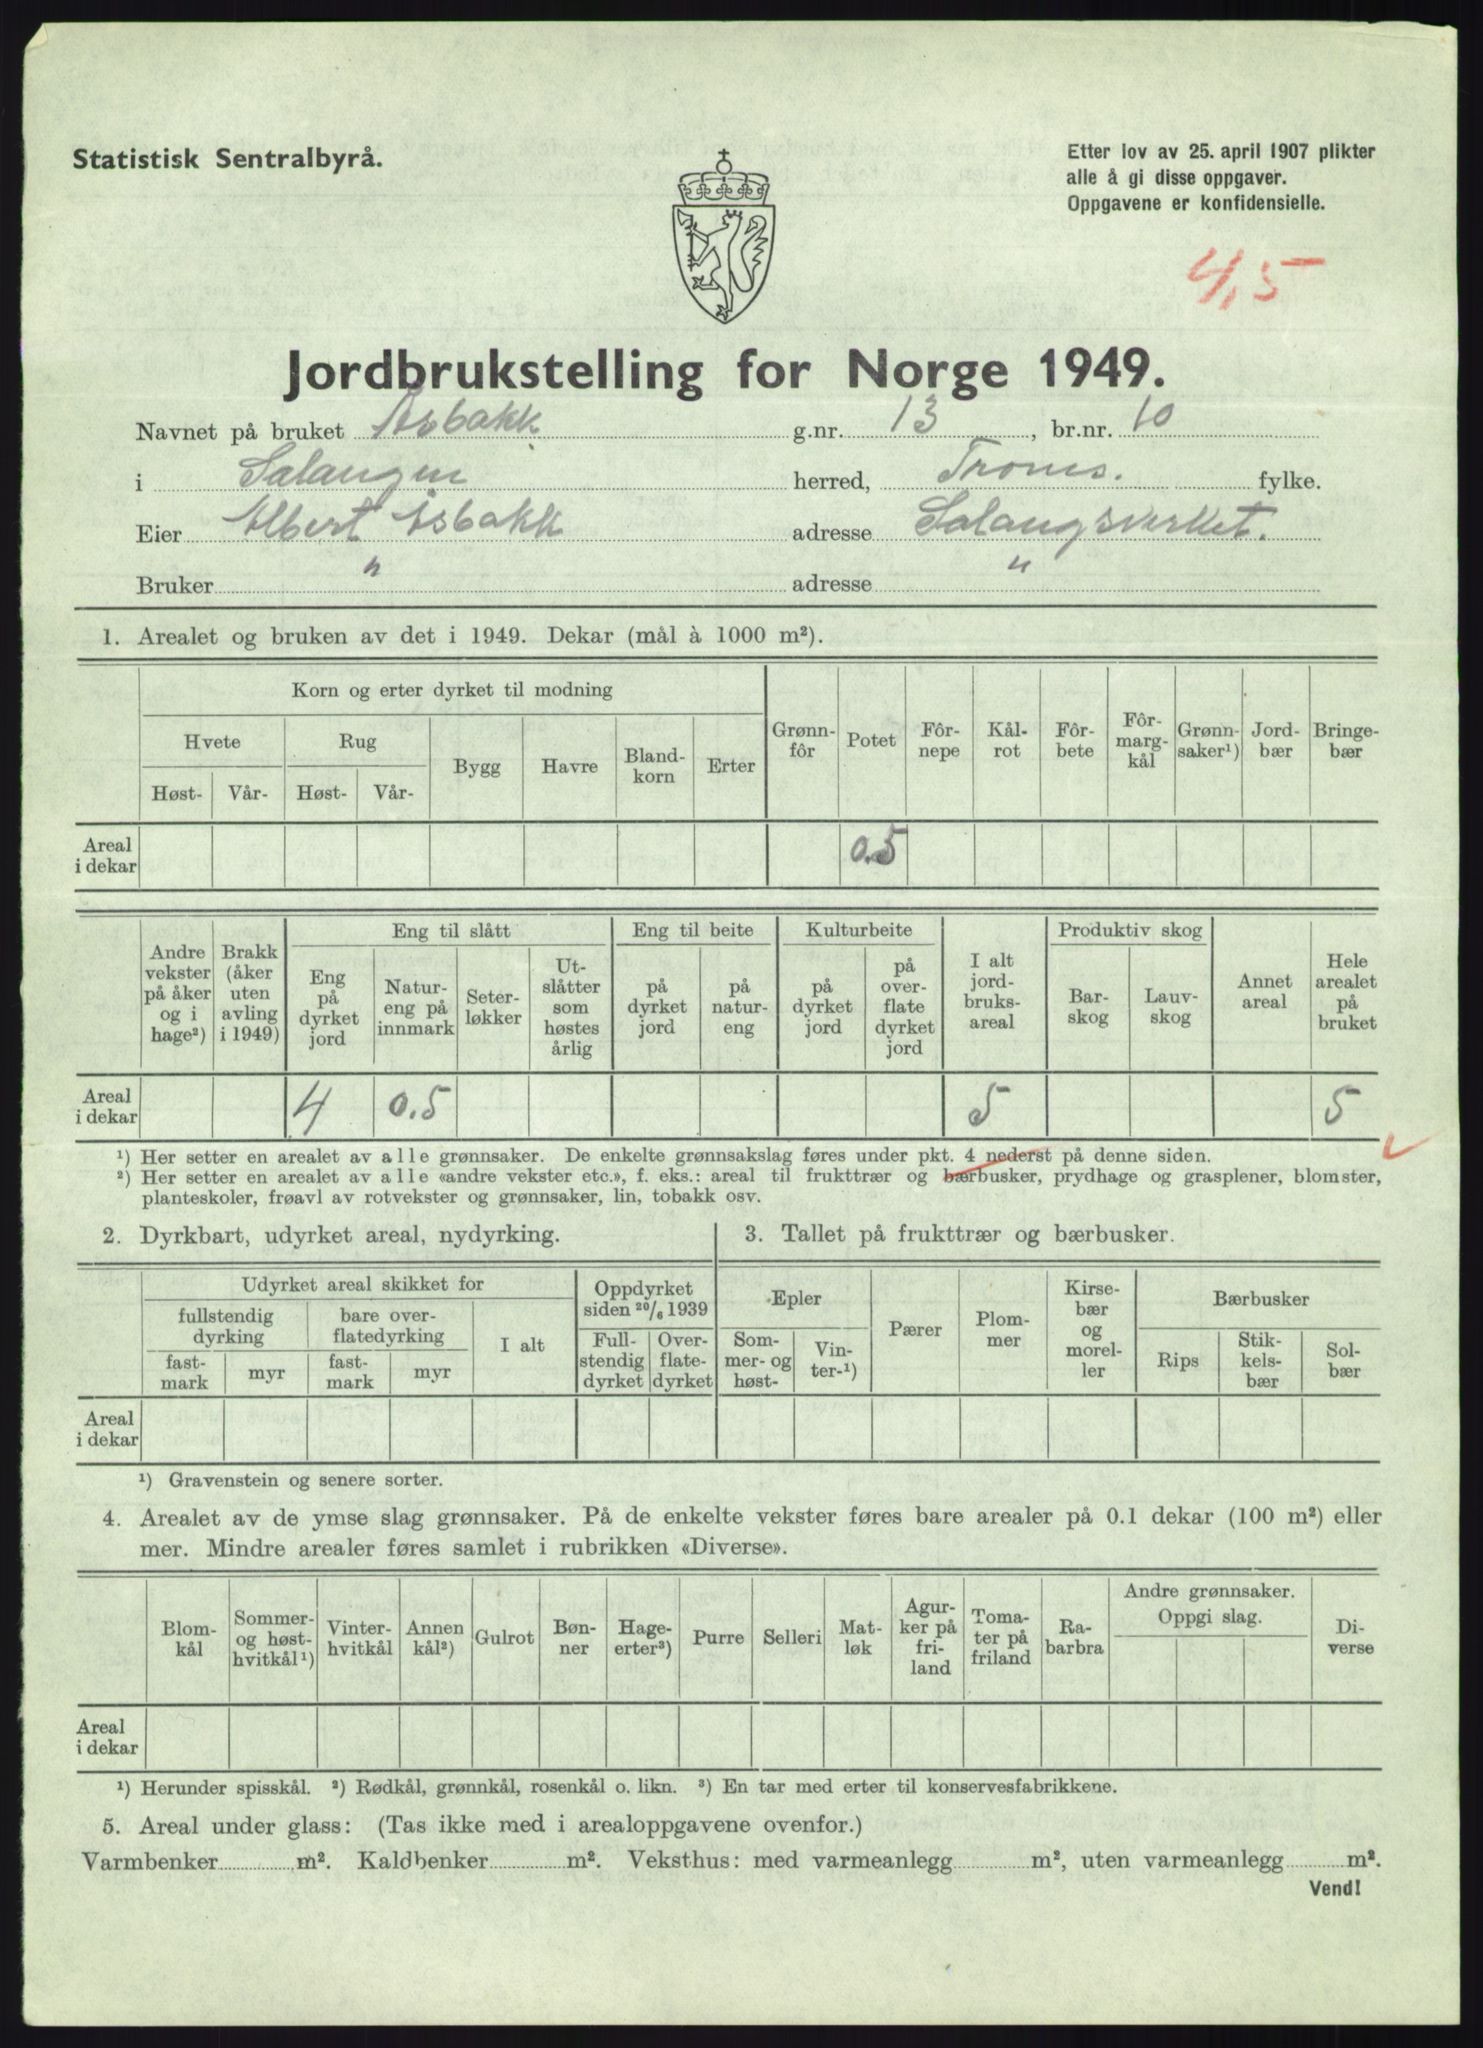 Statistisk Sentralbyrå.
Etter lov av 25. april 1907 plikter
alle å gi disse oppgaver.
Oppgavene er konfidensielle.
4,5
Jordbrukstelling for Norge 1949.
Navnet på bruket Åsbakk g.nr. 13, br.nr. 10
i Salangen herred, Troms. fylke.
Eier Albert Åsbakk adresse Salangsverket.
Bruker " adresse "
1. Arealet og bruken av det i 1949. Dekar (mål à 1000 m²).
Korn og erter dyrket til modning
Hvete Rug
Høst- Vår- Høst- Vår- Bygg Havre Bland-korn Erter Grønn-fôr Potet Fôr-nepe Kål-rot Fôr-bete Fôr-marg-kål Grønn-saker¹) Jord-bær Bringe-bær
Areal
i dekar 0.5
Eng til slått Eng til beite Kulturbeite Produktiv skog
Andre vekster på åker og i hage²) Brakk (åker uten avling i 1949) Eng på dyrket jord Natur-eng på innmark Seter-løkker Ut-slåtter som høstes årlig på dyrket jord på natur-eng på dyrket jord på over-flate dyrket jord I alt jord-bruks-areal Bar-skog Lauv-skog Annet areal Hele arealet på bruket
Areal
i dekar 4 0.5 5 5
¹) Her setter en arealet av alle grønnsaker. De enkelte grønnsakslag føres under pkt. 4 nederst på denne siden.
²) Her setter en arealet av alle «andre vekster etc.», f. eks.: areal til frukttrær og bærbusker, prydhage og grasplener, blomster,
planteskoler, frøavl av rotvekster og grønnsaker, lin, tobakk osv.
2. Dyrkbart, udyrket areal, nydyrking. 3. Tallet på frukttrær og bærbusker.
Udyrket areal skikket for Oppdyrket siden 20/6 1939 Epler Bærbusker
fullstendig dyrking bare over-flatedyrking
fast-mark myr fast-mark myr I alt Full-stendig dyrket Over-flate-dyrket Som-mer- og høst- Vin-ter-¹) Pærer Plom-mer Kirse-bær og morel-ler Rips Stik-kels-bær Sol-bær
Areal
i dekar
¹) Gravenstein og senere sorter.
4. Arealet av de ymse slag grønnsaker. På de enkelte vekster føres bare arealer på 0.1 dekar (100 m²) eller
mer. Mindre arealer føres samlet i rubrikken «Diverse».
Blom-kål Sommer-og høst-hvitkål¹) Vinter-hvitkål Annen kål²) Gulrot Bøn-ner Hage-erter³) Purre Selleri Mat-løk Agur-ker på fri-land Toma-ter på friland Ra-barbra Andre grønnsaker. Oppgi slag. Di-verse
Areal
i dekar
¹) Herunder spisskål. ²) Rødkål, grønnkål, rosenkål o. likn. ³) En tar med erter til konservesfabrikkene.
5. Areal under glass: (Tas ikke med i arealoppgavene ovenfor.)
Varmbenker m². Kaldbenker m². Veksthus: med varmeanlegg m², uten varmeanlegg m².
Vend!